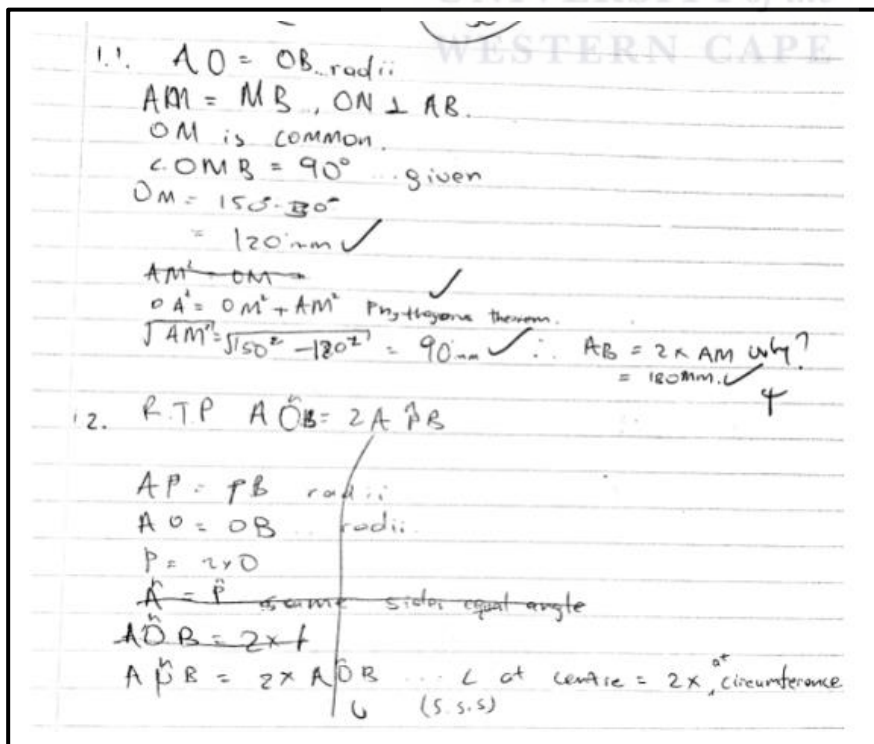 WESTERN CAPE
1.1. AO = OB ... radii
AM = MB ., ON ⊥ AB.
OM is common.
∠OMB = 90° ... given
OM = 150-30
= 120 mm ✓
AM² OM
✓
OA² = OM² + AM² theorem.
√AM² = √150² - 120² = 90 mm ✓ ∴ AB = 2 × AM why?
= 180mm. ✓
4
1.2. R.T.P AÔB = 2 A P̂ B
AP = PB radii
AO = OB .. radii
P = 2×O
Â = P̂ same sides equal angle
AÔB = 2 ×
A P̂ B = 2 × A Ô B ... ∠ at centre = 2 × at circumference
(s.s.s)